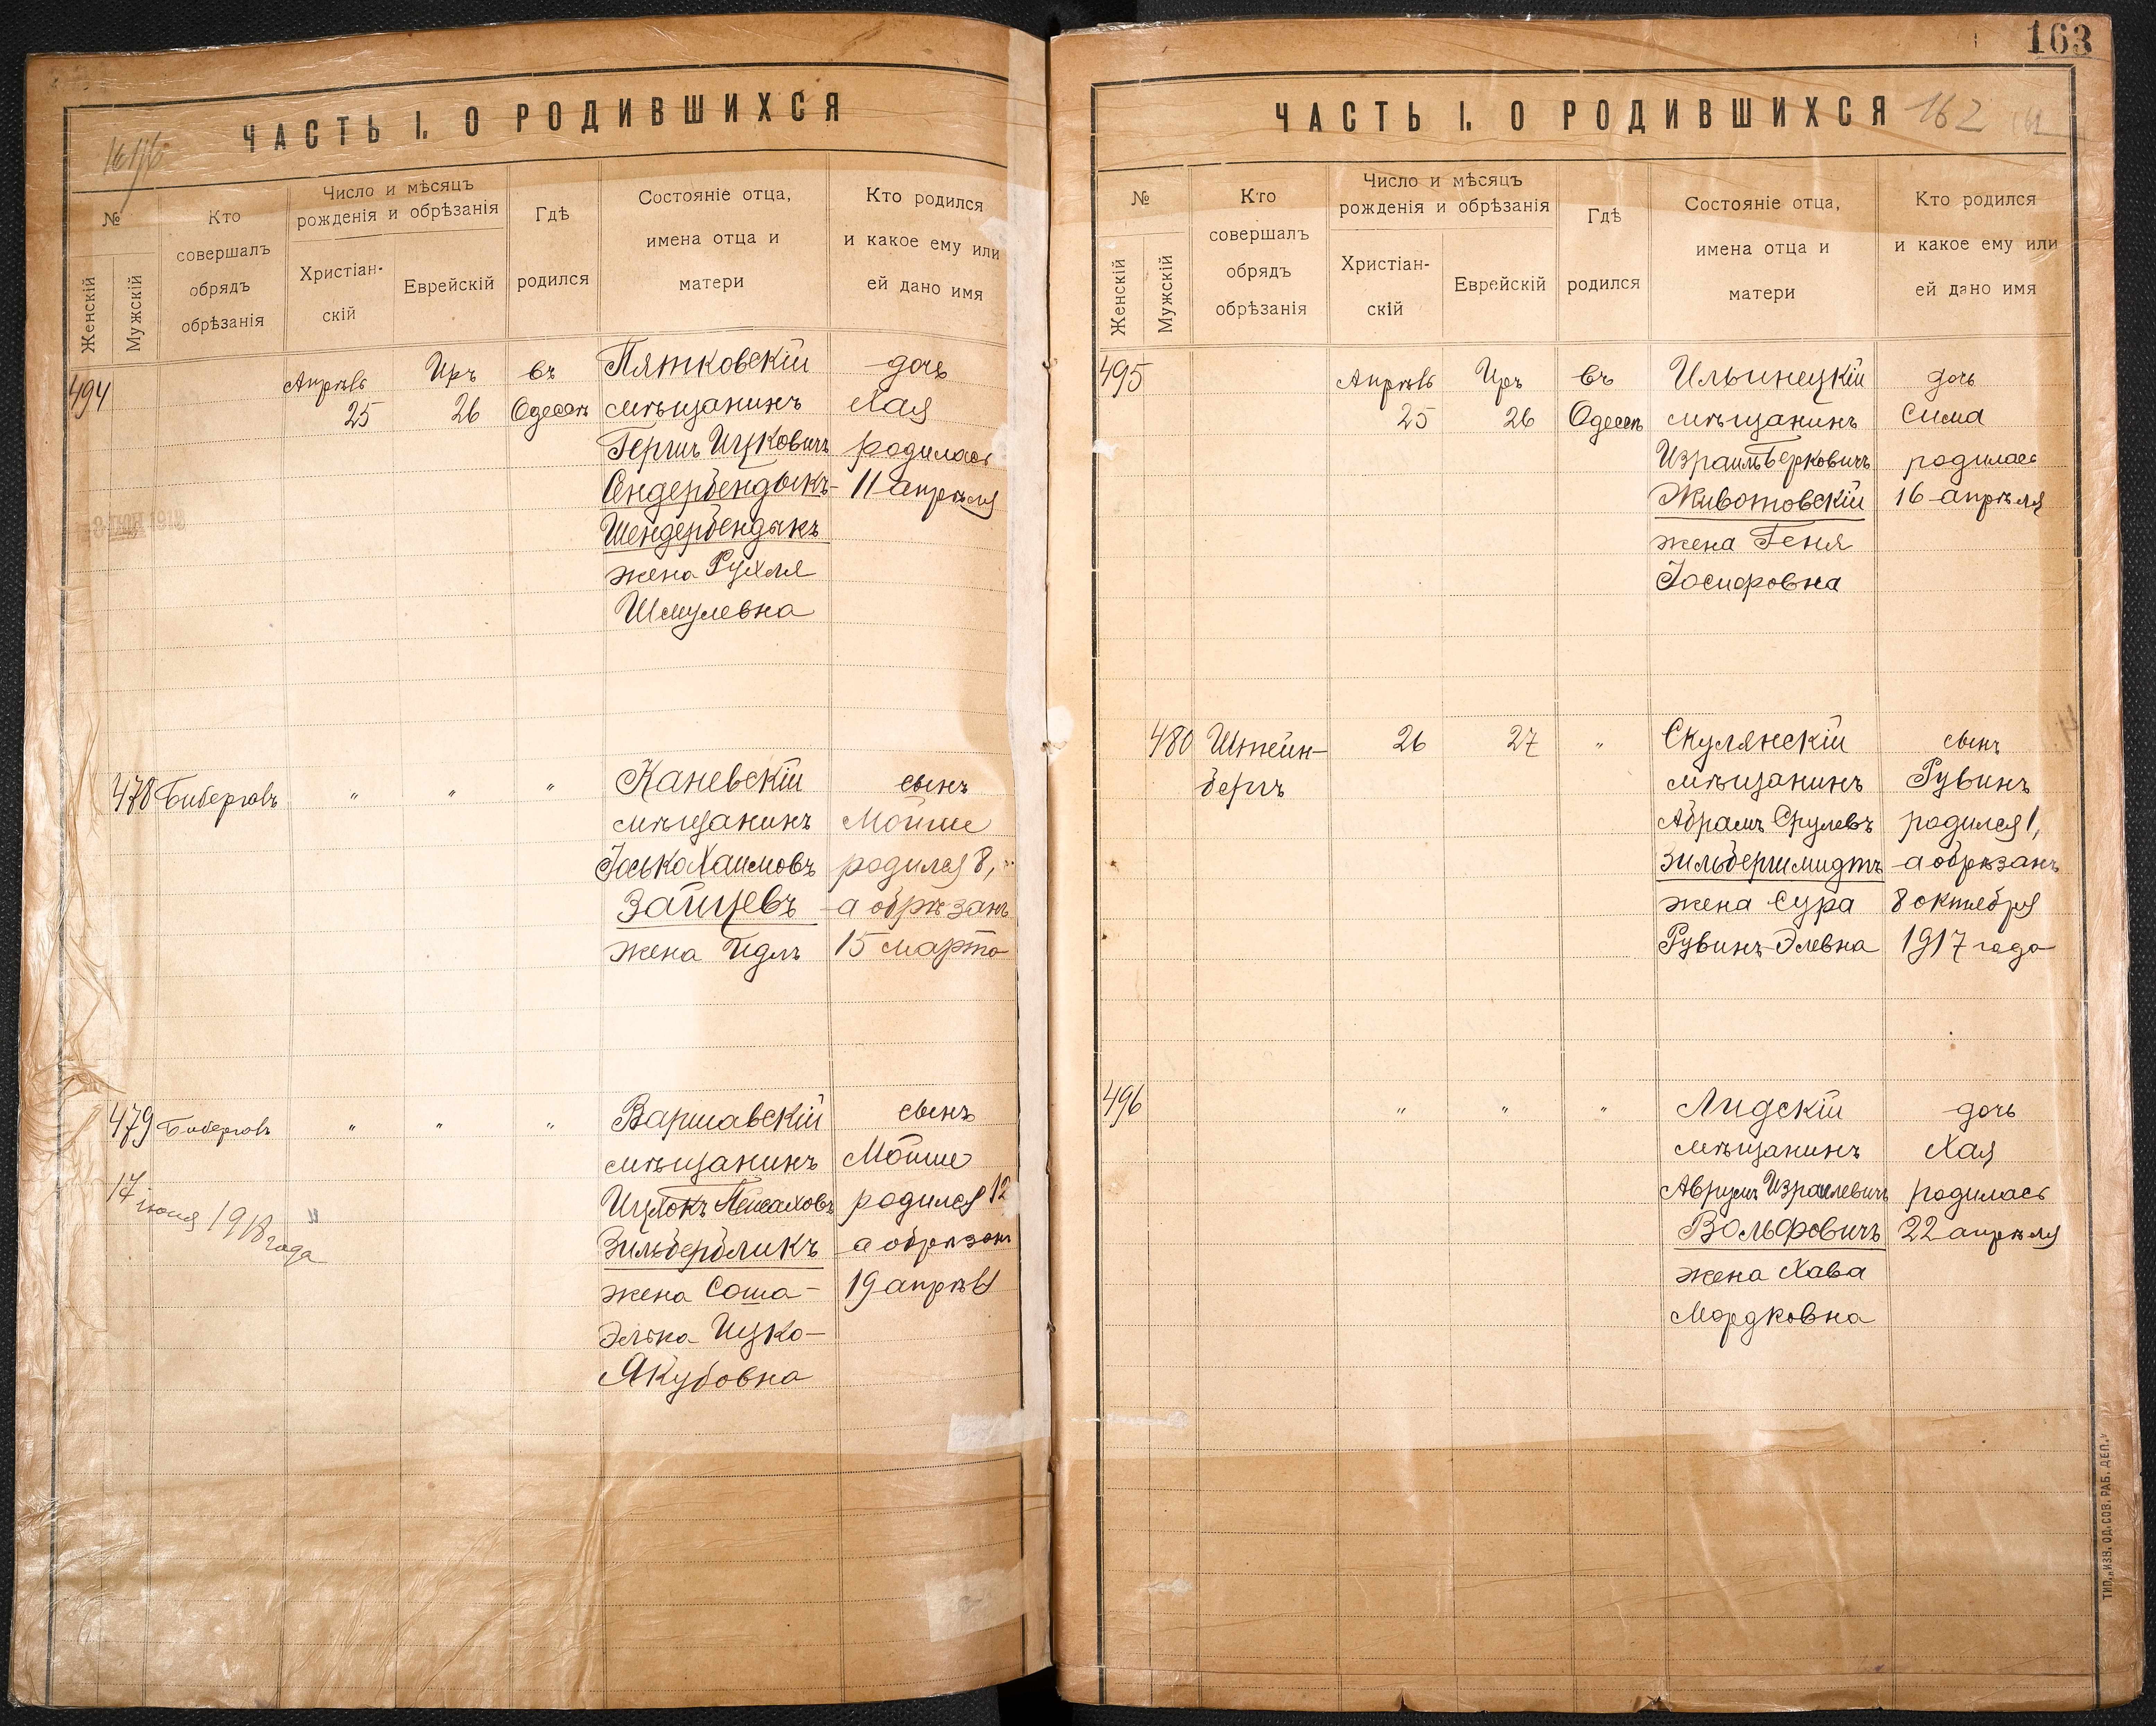 ЧАСТЬ I. О РОДИВШИХСЯ
№
Женскій
Мужскій
Кто
совершалъ
обрядъ
обрѣзанія
Число и мѣсяцъ
рожденія и обрѣзанія
Христіан-
скій
Еврейскій
Гдѣ
родился
Состояніе отца,
имена отца и
матери
Кто родился
и какое ему или
ей дано имя
494
Апрѣль
25
Иръ
26
въ
Одессѣ
Пятковскій
мѣщанинъ
Гершъ Ицковичъ
Сендербендыкъ-
Шендербендыкъ
жена Рухля
Шмулевна
дочь
Хая
родилась
11 апрѣля
478
Биберговъ
"
"
"
Каневскій
мѣщанинъ
Іоська Хаимовъ
Зайцевъ
жена Идль
сынъ
Мойше
родился 8,
а обрѣзанъ
15 марта
479
Биберговъ
"
"
"
17 іюня 1918 года
Варшавскій
мѣщанинъ
Ицхокъ Пейсаховъ
Зильбербликъ
жена Соша-
Элька Ицко-
Якубовна
сынъ
Мойше
родился 12
а обрѣзанъ
19 апрѣля
163
ЧАСТЬ I. О РОДИВШИХСЯ 162
№
Женскій
Мужскій
Кто
совершалъ
обрядъ
обрѣзанія
Число и мѣсяцъ
рожденія и обрѣзанія
Христіан-
скій
Еврейскій
Гдѣ
родился
Состояніе отца,
имена отца и
матери
Кто родился
и какое ему или
ей дано имя
495
Апрѣль
25
Иръ
26
въ
Одессѣ
Ильинецкій
мѣщанинъ
Израиль Берковичъ
Животовскій
жена Геня
Іосифовна
дочь
Сима
родилась
16 апрѣля
480
Штейн-
бергъ
26
27
"
Скулянскій
мѣщанинъ
Абрамъ Срулевъ
Зильбершмидтъ
жена Сура
Рувинъ-Элевна
сынъ
Рувинъ
родился 1,
а обрѣзанъ
8 октября
1917 года
496
"
"
"
Лидскій
мѣщанинъ
Аврумъ Израилевичъ
Вольфовичъ
жена Хава
Мордковна
дочь
Хая
родилась
22 апрѣля
ТИП. „ИЗВ. ОД. СОВ. РАБ. ДЕП."